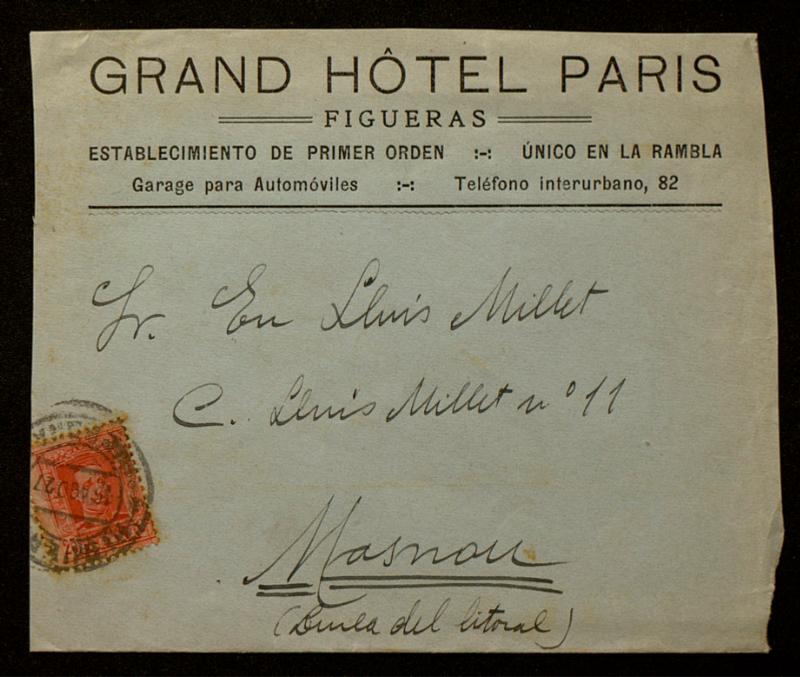 GRAND HÔTEL PARIS
FIGUERAS
ESTABLECIMIENTO DE PRIMER ORDEN :-: ÚNICO EN LA RAMBLA
Garage para Automóviles :-: Teléfono interurbano, 82
Sr. En Lluis Millet
C. Lluis Millet nº 11
Masnou
(Linea del litoral)
AGO 27